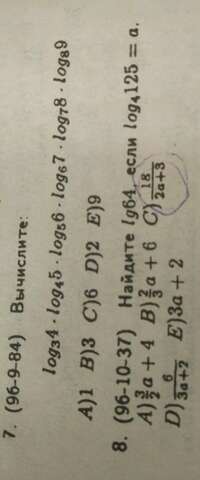 7. (96-9-84) Вычислите:
log₃4 · log₄5 · log₅6 · log₆7 · log₇8 · log₈9
A)1 B)3 C)6 D)2 E)9
8. (96-10-37) Найдите lg64, если log₄125 = a.
A) 3/2 a + 4 B) 2/3 a + 6 C) 18/(2a+3)
D) 6/(3a+2) E)3a + 2